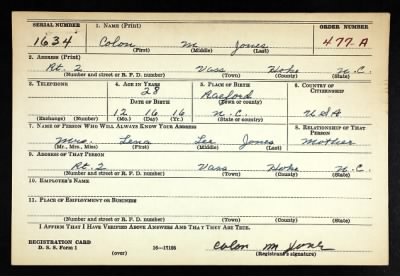 SERIAL NUMBER 1. NAME (Print) ORDER NUMBER
1634 Colon M Jones 477-A
(First) (Middle) (Last)
2. ADDRESS (Print)
Rt. 2 Vass Hoke N.C.
(Number and street or R. F. D. number) (Town) (County) (State)
3. TELEPHONE 4. AGE IN YEARS 5. PLACE OF BIRTH 6. COUNTRY OF CITIZENSHIP
28 Raeford
DATE OF BIRTH (Town or county)
12 16 16 N.C. USA
(Exchange) (Number) (Mo.) (Day) (Yr.) (State or country)
7. NAME OF PERSON WHO WILL ALWAYS KNOW YOUR ADDRESS 8. RELATIONSHIP OF THAT PERSON
Mrs. Lena Lee Jones Mother
(Mr., Mrs., Miss) (First) (Middle) (Last)
9. ADDRESS OF THAT PERSON
Rt. 2 Vass Hoke N.C.
(Number and street or R. F. D. number) (Town) (County) (State)
10. EMPLOYER'S NAME
11. PLACE OF EMPLOYMENT OR BUSINESS
(Number and street or R. F. D. number) (Town) (County) (State)
I AFFIRM THAT I HAVE VERIFIED ABOVE ANSWERS AND THAT THEY ARE TRUE.
REGISTRATION CARD
D. S. S. Form 1 16—17105 Colon M Jones
(over) (Registrant's signature)